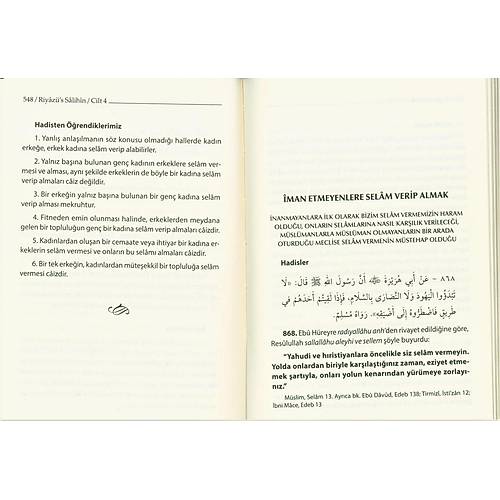 548 / Riyâzü's Sâlihîn / Cilt 4
Hadisten Öğrendiklerimiz
1. Yanlış anlaşılmanın söz konusu olmadığı hallerde kadın
erkeğe, erkek kadına selâm verip alabilirler.
2. Yalnız başına bulunan genç kadının erkeklere selâm ver-
mesi ve alması, aynı şekilde erkeklerin de böyle bir kadına selâm
verip almaları câiz değildir.
3. Bir erkeğin yalnız başına bulunan bir genç kadına selâm
verip alması mekruhtur.
4. Fitneden emin olunması halinde, erkeklerden meydana
gelen bir topluluğun genç bir kadına selâm verip almaları câizdir.
5. Kadınlardan oluşan bir cemaate veya ihtiyar bir kadına er-
keklerin selâm vermesi ve onların bu selâmı almaları câizdir.
6. Bir tek erkeğin, kadınlardan müteşekkil bir topluluğa selâm
vermesi câizdir.
İMAN ETMEYENLERE SELÂM VERİP ALMAK
İNANMAYANLARA İLK OLARAK BİZİM SELÂM VERMEMİZİN HARAM
OLDUĞU, ONLARIN SELÂMLARINA NASIL KARŞILIK VERİLECEĞİ,
MÜSLÜMANLARLA MÜSLÜMAN OLMAYANLARIN BİR ARADA
OTURDUĞU MECLİSE SELÂM VERMENİN MÜSTEHAP OLDUĞU
Hadisler
٨٦٨ – عَنْ أَبِي هُرَيْرَةَ ﷺ أَنَّ رَسُولَ اللهِ ﷺ قَالَ: «لَا
تَبْدَؤُوا الْيَهُودَ وَلَا النَّصَارَى بِالسَّلَامِ، فَإِذَا لَقِيتُمْ أَحَدَهُمْ فِي
طَرِيقٍ فَاضْطَرُّوهُ إِلَى أَضْيَقِهِ». رَوَاهُ مُسْلِمٌ.
868. Ebû Hüreyre radıyallahu anh'den rivayet edildiğine göre,
Resûlullah sallallâhu aleyhi ve sellem şöyle buyurdu:
"Yahudi ve hıristiyanlara öncelikle siz selâm vermeyin.
Yolda onlardan biriyle karşılaştığınız zaman, eziyet etme-
mek şartıyla, onları yolun kenarından yürümeye zorlayı-
nız."
Müslim, Selâm 13. Ayrıca bk. Ebû Dâvûd, Edeb 138; Tirmizî, İsti'zân 12;
İbni Mâce, Edeb 13